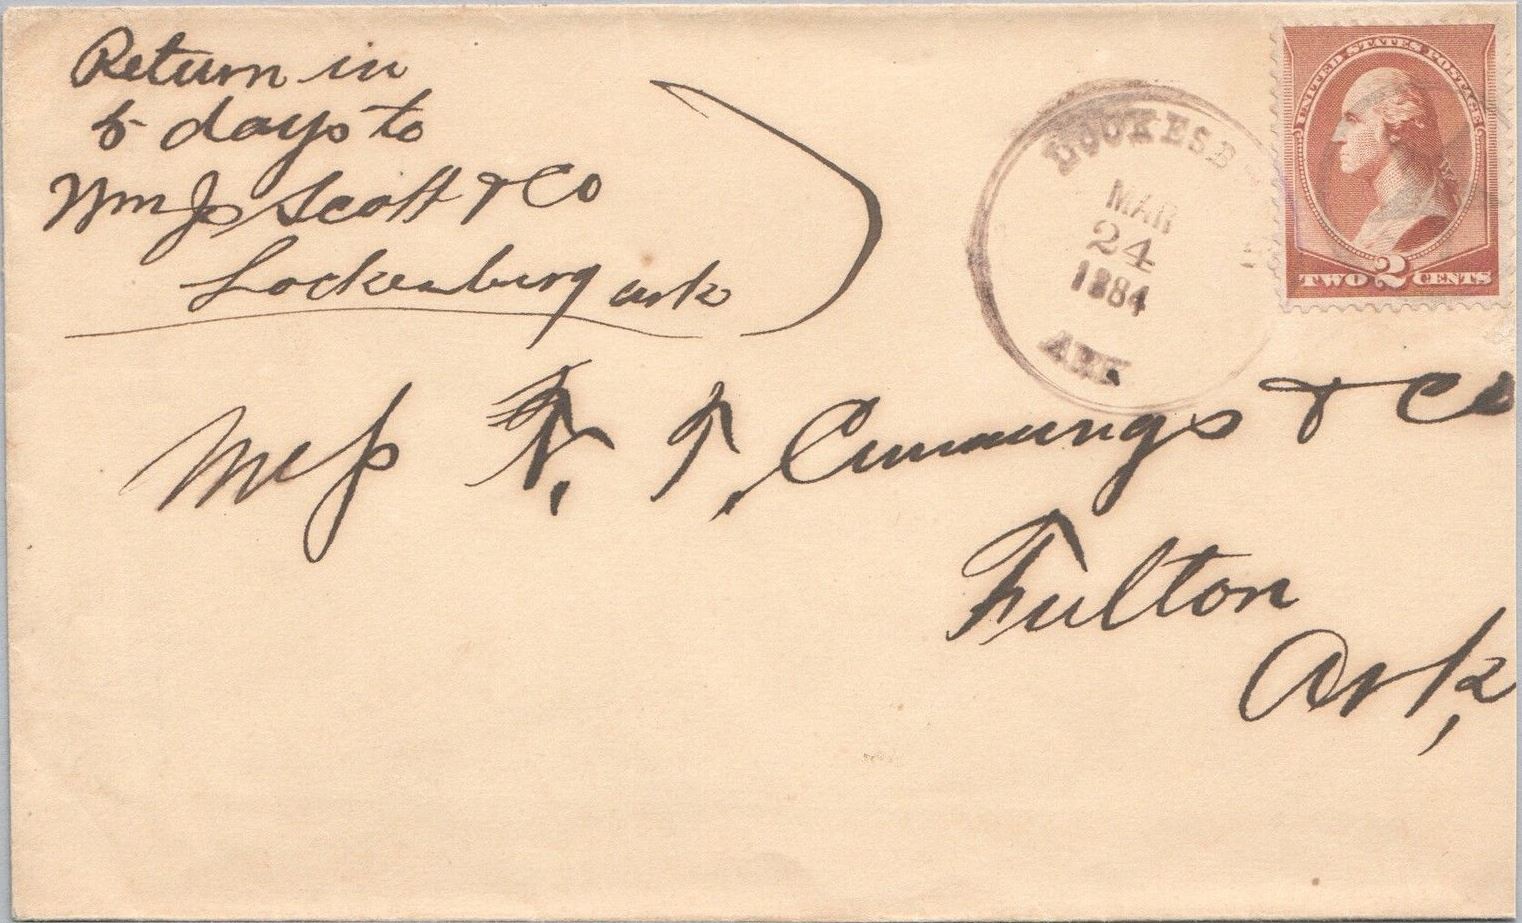 Return in
5 days to
Wm J Scott & Co
Lockesburg ark
UNITED STATES POSTAGE
TWO 2 CENTS
MAR
24
1884
ARK
Mess N. T. Cummings & Co
Fulton
Ark,